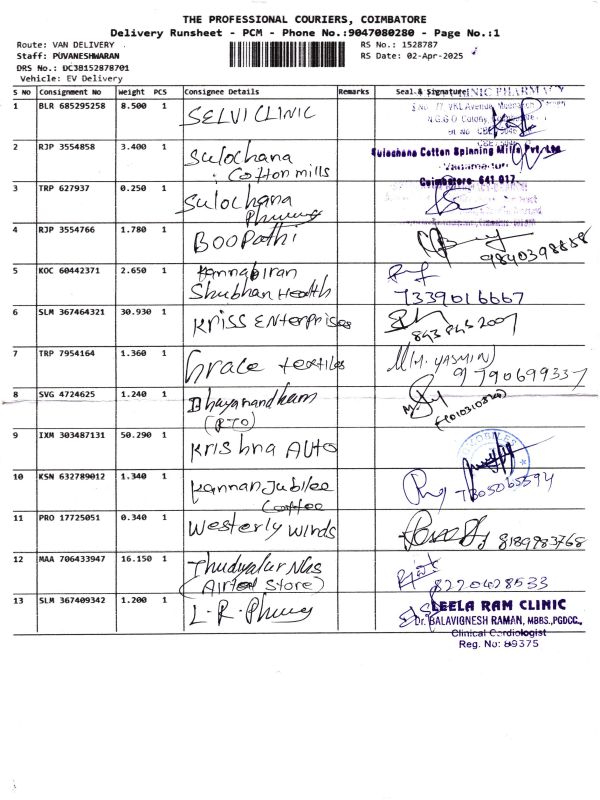 THE PROFESSIONAL COURIERS, COIMBATORE
Delivery Runsheet - PCM - Phone No.:9047080280 - Page No.:1
Route: VAN DELIVERY RS No.: 1528787
Staff: PUVANESHWARAN RS Date: 02-Apr-2025
DRS No.: DC3B152878701
Vehicle: EV Delivery
S No Consignment No Weight PCS Consignee Details Remarks Seal & Signature
1 BLR 685295258 8.500 1 SELVI CLINIC
CLINIC PHARMACY
2 RJP 3554858 3.400 1 Sulochana
Cotton mills
Sulochana Cotton Spinning Mills Pvt. Ltd
Coimbatore- 641 017.
3 TRP 627937 0.250 1 Sulochana
4 RJP 3554766 1.780 1 Boopathi
9840398888
5 KOC 60442371 2.650 1 Kannabiran
Shubhan Health
7339016667
6 SLM 367464321 30.930 1 Kriss Enterprises
7 TRP 7954164 1.360 1 Grace textiles
M(M. YASMIN)
9790699337
8 SVG 4724625 1.240 1 Dhayanandham
(RTO)
9 IXM 303487131 50.290 1 Krishna AUTO
10 KSN 632789012 1.340 1 Kannan Jubilee
Coffee
7305065594
11 PRO 17725051 0.340 1 Westerly winds
8189983768
12 MAA 706433947 16.150 1 Thudiyalur
(Airtel Store)
8220428533
13 SLM 367409342 1.200 1 L.R.
LEELA RAM CLINIC
Dr. BALAVIGNESH RAMAN, MBBS.,PGDCC.,
Clinical Cardiologist
Reg. No: 89375